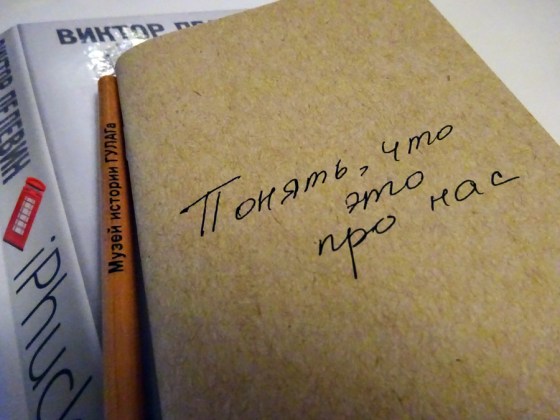 ВИКТОР ПЕ
ВИКТОР ПЕЛЕВИН
iPhuck
Музей истории ГУЛАГа
Понять, что
это
про нас